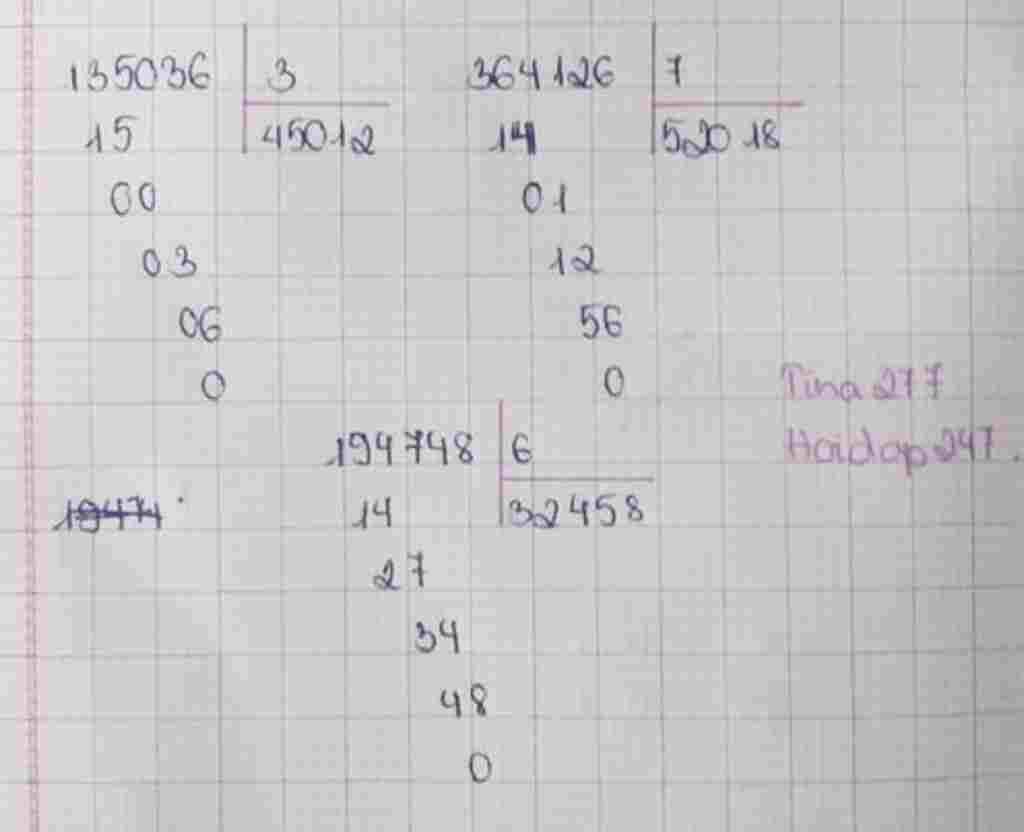 135036 3
15 45012
00
03
06
0
364126 7
14 52018
01
12
56
0
Tina 277
Hoidap247.
194748 6
14 32458
27
34
48
0